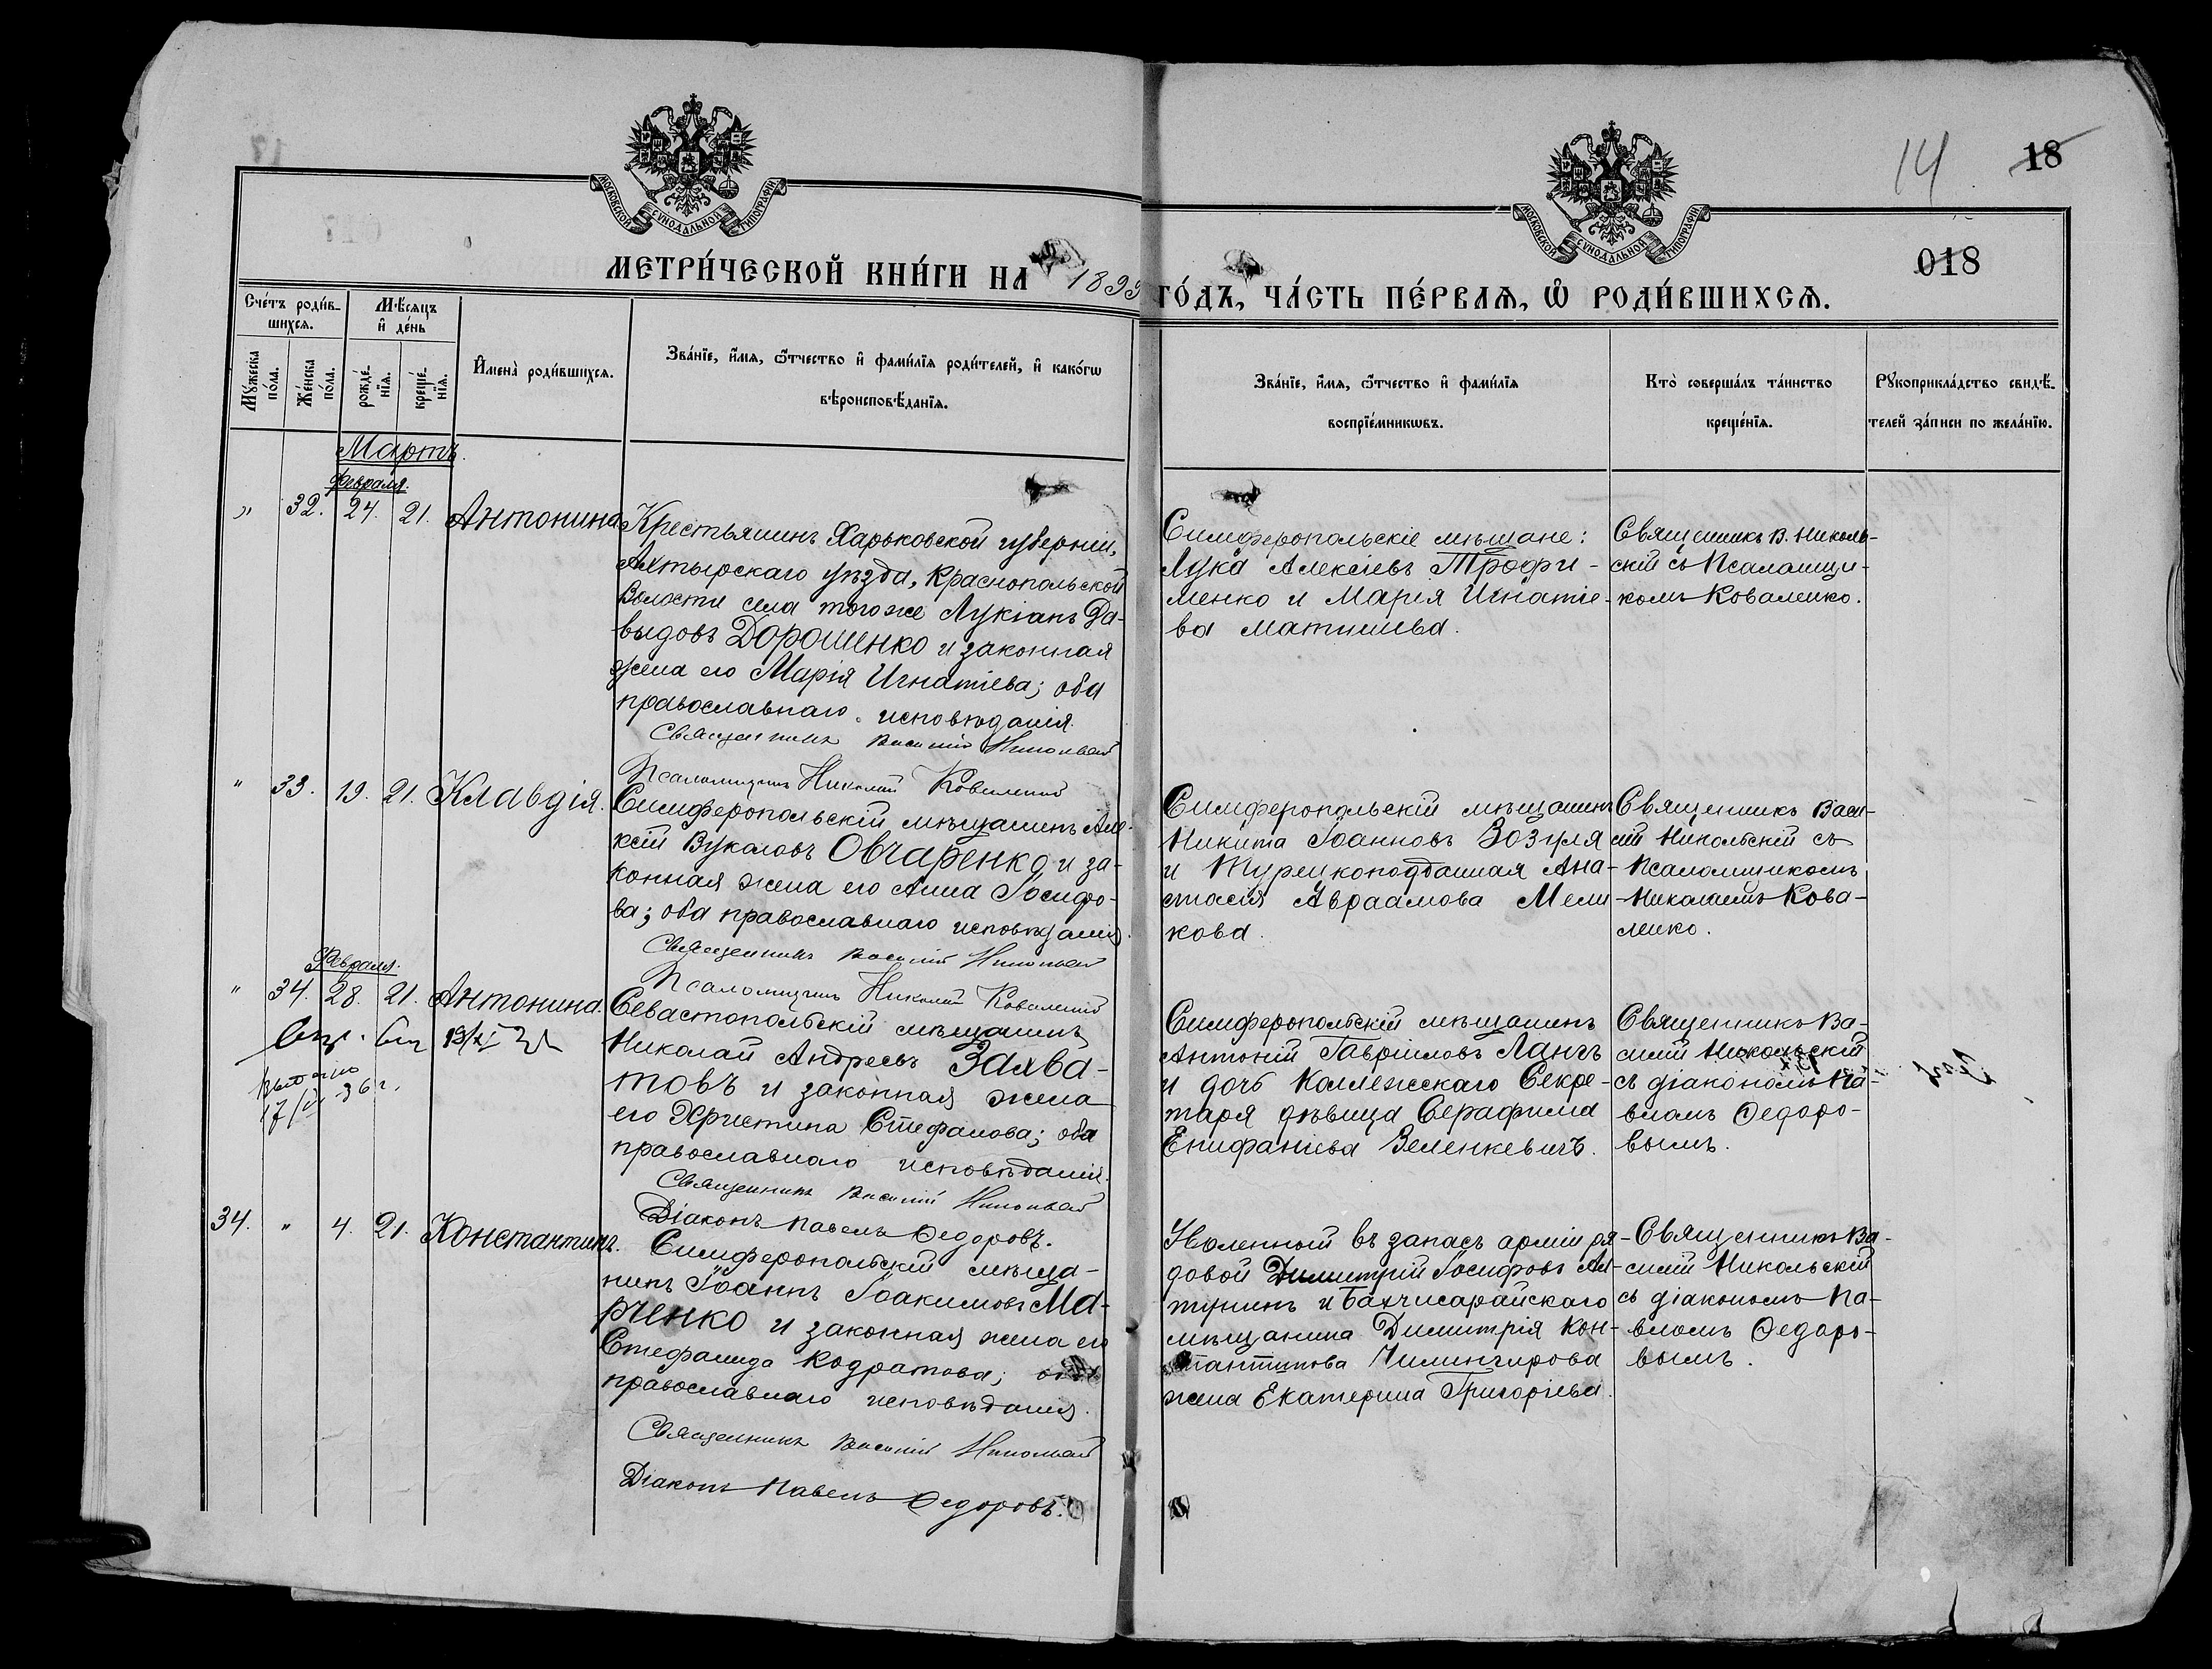 14 18
018
МОСКОВСКОЙ СѴНОДАЛЬНОЙ ТИПОГРАФІИ
МОСКОВСКОЙ СѴНОДАЛЬНОЙ ТИПОГРАФІИ
МЕТРИ́ЧЕСКОЙ КНИ́ГИ НА 1899 ГО́ДЪ, ЧА́СТЬ ПЕ́РВАѦ, Ѡ҆ РОДИ́ВШИХСѦ.
Сче́тъ роди́в-
шихсѧ.
Мꙋ́жеска по́ла.
Же́нска по́ла.
Мѣ́сѧцъ
и҆ де́нь
рожде́-
нїѧ.
креще́-
нїѧ.
И҆мена̀ роди́вшихсѧ.
Зва́нїе, и҆́мѧ, ѻ҆́тчество и҆ фами́лїѧ роди́телей, и҆ како́гѡ
вѣроисповѣ́данїѧ.
Зва́нїе, и҆́мѧ, ѻ҆́тчество и҆ фами́лїѧ
воспрїе́мникѡвъ.
Кто̀ соверша́лъ та́инство
креще́нїѧ.
Рꙋкоприкла́дство свидѣ́-
телей за́писи по жела́нїю.
Мартъ.
Февраля.
" 32. 24. 21. Антонина
Крестьянинъ Харьковской губерніи,
Ахтырскаго уѣзда, Краснопольской
Волости села тогоже Лукіанъ Да-
выдовъ Дорошенко и законная
жена его Марія Игнатіева; оба
православнаго исповѣданія.
Священникъ Василій Никольскій
Псаломщикъ Николай Коваленко
Симферопольскіе мѣщане:
Лука Алексѣевъ Трофи-
менко и Марія Игнатіе-
ва Матнѣева.
Священникъ В. Николь-
скій съ Псаломщи-
комъ Коваленко.
" 33. 19. 21. Клавдія.
Симферопольскій мѣщанинъ Але-
ксій Вуколовъ Овчаренко и за-
конная жена его Анна Іосифо-
ва; оба православнаго исповѣданія.
Священникъ Василій Никольскій
Псаломщикъ Николай Коваленко
Симферопольскій мѣщанинъ
Никита Іоанновъ Зозуля
и Турецкоподданная Ана-
стасія Авраамова Мели-
кова.
Священникъ Васи-
лій Никольскій съ
Псаломщикомъ
Николаемъ Кова-
ленко.
Февраля.
" 34. 28. 21. Антонина.
выдано
17/VI 36 г.
Севастопольскій мѣщанинъ
Николай Андреевъ Захва-
товъ и законная жена
его Христина Стефанова; оба
православнаго исповѣданія.
Священникъ Василій Никольскій
Діаконъ Павелъ Ѳедоровъ.
Симферопольскій мѣщанинъ
Антоній Гавріиловъ Лангъ
и дочь Коллежскаго Секре-
таря дѣвица Серафима
Епифаніева Зеленкевичъ.
Священникъ Ва-
силій Никольскій
съ діакономъ Па-
вломъ Ѳедоро-
вымъ.
34. " 4. 21. Константинъ.
Симферопольскій мѣща-
нинъ Іоаннъ Іоакимовъ Ма-
рченко и законная жена его
Стефанида Кодратова; оба
православнаго исповѣданія.
Священникъ Василій Никольскій
Діаконъ Павелъ Ѳедоровъ.
Уволенный въ запасъ арміи ря-
довой Димитрій Іосифовъ Ал-
тунинъ и Бахчисарайскаго
мѣщанина Димитрія Кон-
стантинова Чилингирова
жена Екатерина Григоріева.
Священникъ Ва-
силій Никольскій
съ діакономъ Па-
вломъ Ѳедоро-
вымъ.